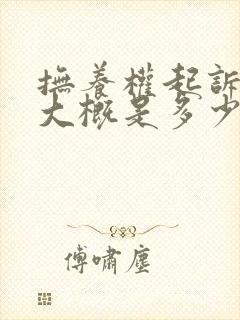 撫養權起訴
大概是多少
傅嘯塵